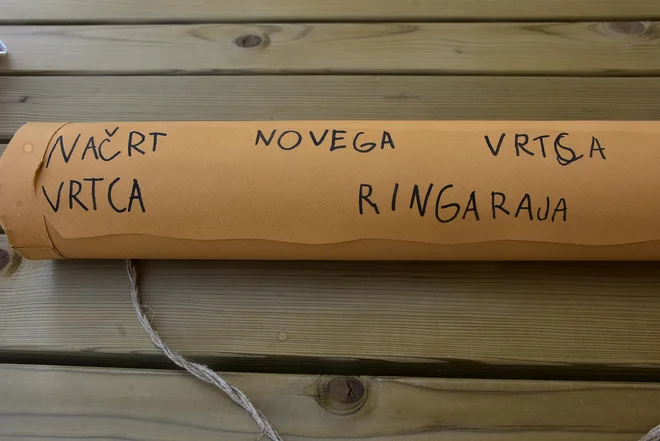 NAČRT NOVEGA VRTCA
VRTCA RINGARAJA